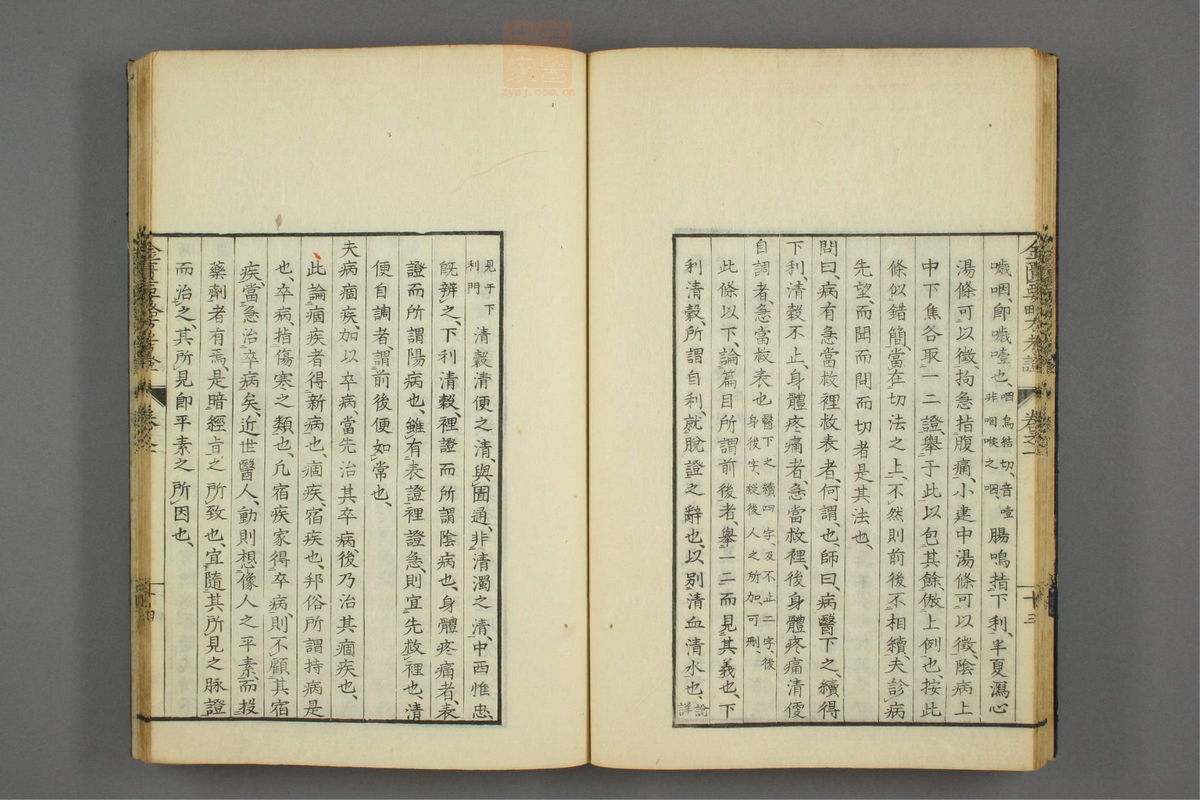 噦咽、卽噦噎也、咽烏結切、音噎非咽喉之咽、腸鳴指下利、半夏瀉心
湯條可以徵、拘急指腹痛、小建中湯條可以徵、陰病上
中下焦各取一二證、舉于此以包其餘、倣上例也、按此
條似錯簡、當在切法之上、不然則前後不相續、夫診病
先望、而聞而問而切者、是其法也、
問曰、病有急當救裡救表者、何謂也、師曰、病醫下之、續得
下利、清穀不止、身體疼痛者、急當救裡、後身體疼痛清便
自調者、急當救表也、醫下之續四字、及不止二字、後身後字、疑後人之所加、可刪、
此條以下、論篇目所謂前後者、舉一二而見其義也、下
利清穀、所謂自利、就脫證之辭也、以別清血清水也、說詳
見于下利門 清穀清便之清、與圊通、非清濁之清、中西惟忠
旣辨之、下利清穀、裡證而所謂陰病也、身體疼痛者、表
證而所謂陽病也、雖有表證裡證急、則宜先救裡也、清
便自調者、謂前後便如常也、
夫病痼疾、加以卒病、當先治其卒病、後乃治其痼疾也、
此論痼疾者得新病也、痼疾、宿疾也、邦俗所謂持病是
也、卒病、指傷寒之類也、凡宿疾家得卒病、則不顧其宿
疾、當急治卒病矣、近世醫人、動則想像人之平素、而投
藥劑者有焉、是暗經旨之所致也、宜隨其所見之脉證
而治之、其所見卽平素之所因也、
金匱要略方考證 卷之一 十三
卷之一 十四
zysj.com.cn